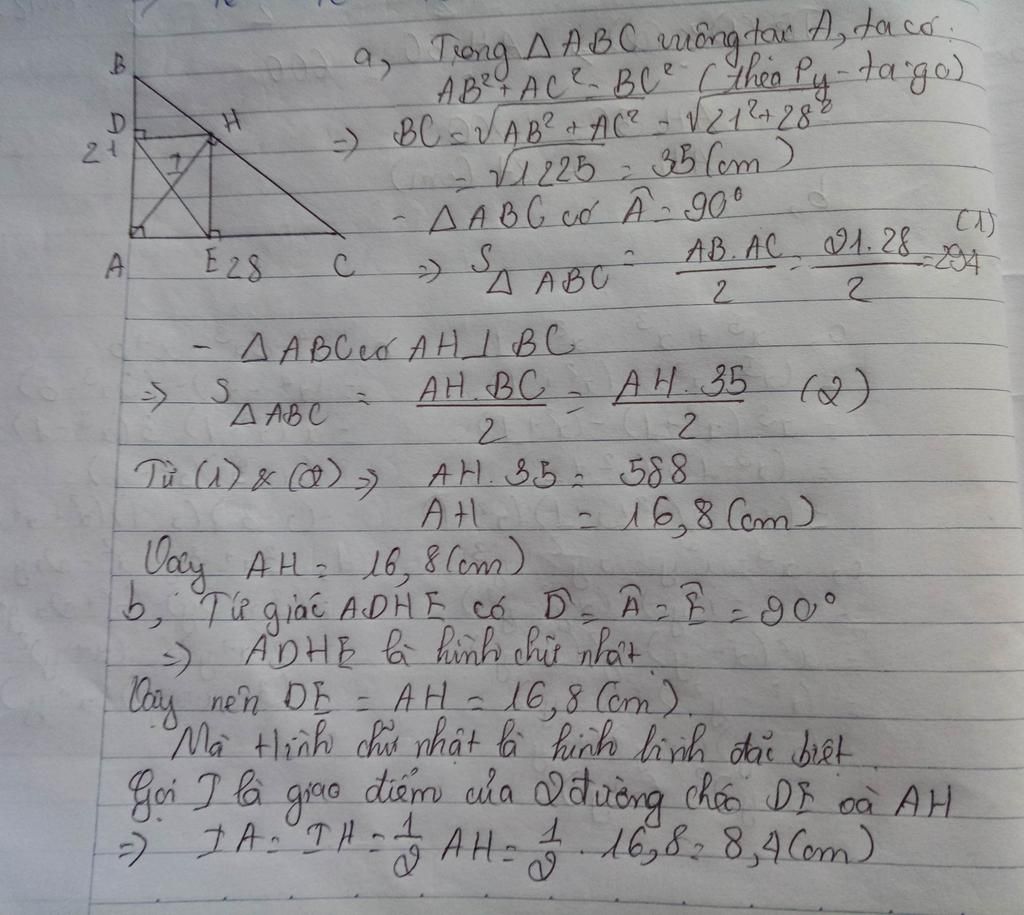 a, Trong Δ ABC vuông tại A, ta có:
AB² + AC² = BC² (theo Py-ta-go)
=> BC = √AB² + AC² = √21² + 28²
= √1225 = 35 (cm)
- Δ ABC có Â = 90°
=> S Δ ABC = AB.AC / 2 = 21.28 / 2 = 294 (1)
B
D
H
21
I
A
E 28
C
- Δ ABC có AH ⊥ BC
=> S Δ ABC = AH.BC / 2 = AH.35 / 2 (2)
Từ (1) & (2) => AH.35 = 588
AH = 16,8 (cm)
Vậy AH = 16,8 (cm)
b, Tứ giác ADHE có D̂ = Â = Ê = 90°
=> ADHE là hình chữ nhật
Vậy nên DE = AH = 16,8 (cm).
Mà Hình chữ nhật là hình bình đặc biệt.
Gọi I là giao điểm của 2 đường chéo DE và AH
=> IA = IH = 1/2 AH = 1/2 . 16,8 = 8,4 (cm)